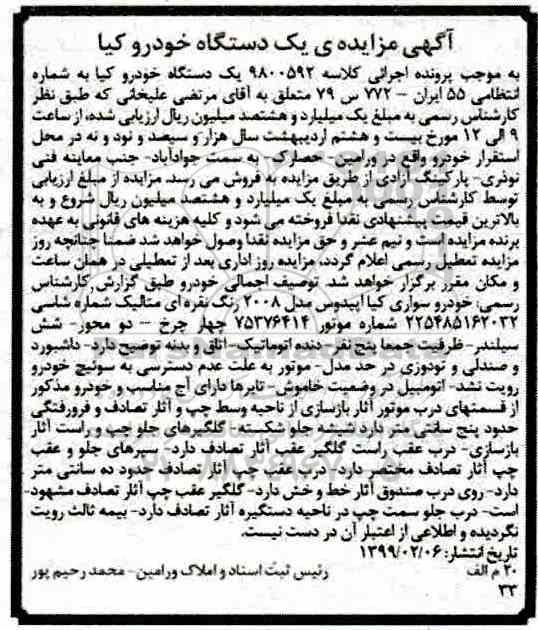 آگهی مزایده ی یک دستگاه خودرو کیا
به موجب پرونده اجرائی کلاسه ۹۸۰۰۵۹۲ یک دستگاه خودرو کیا به شماره
انتظامی ۵۵ ایران – ۷۷۲ س ۷۹ متعلق به آقای مرتضی علیخانی که طبق نظر
کارشناس رسمی به مبلغ یک میلیارد و هشتصد میلیون ریال ارزیابی شده، از ساعت
۹ الی ۱۲ مورخ بیست و هشتم اردیبهشت سال هزار و سیصد و نود و نه در محل
استقرار خودرو واقع در ورامین- حصارک- به سمت جوادآباد- جنب معاینه فنی
نوذری- پارکینگ آزادی از طریق مزایده به فروش می رسد. مزایده از مبلغ ارزیابی
توسط کارشناس رسمی به مبلغ یک میلیارد و هشتصد میلیون ریال شروع و به
بالاترین قیمت پیشنهادی نقدا فروخته می شود و کلیه هزینه های قانونی به عهده
برنده مزایده است و نیم عشر و حق مزایده نقدا وصول خواهد شد ضمنا چنانچه روز
مزایده تعطیل رسمی اعلام گردد، مزایده روز اداری بعد از تعطیلی در همان ساعت
و مکان مقرر برگزار خواهد شد. توصیف اجمالی خودرو طبق گزارش کارشناس
رسمی: خودرو سواری کیا اپیدوس مدل ۲۰۰۸ رنگ نقره ای متالیک شماره شاسی
۲۲۵۴۸۵۱۶۲۰۳۲ شماره موتور ۷۵۳۷۶۴۱۴ چهار چرخ – دو محور- شش
سیلندر- ظرفیت جمعا پنج نفر- دنده اتوماتیک- اتاق و بدنه توضیح دارد- داشبورد
و صندلی و تودوزی در حد مدل- موتور به علت عدم دسترسی به سوئیچ خودرو
رویت نشد- اتومبیل در وضعیت خاموش- تایرها دارای آج مناسب و خودرو مذکور
از قسمتهای درب موتور آثار بازسازی از ناحیه وسط چپ و آثار تصادف و فرورفتگی
حدود پنج سانتی متر دارد شیشه جلو شکسته- گلگیرهای جلو چپ و راست آثار
بازسازی- درب عقب راست گلگیر عقب آثار تصادف دارد- سپرهای جلو و عقب
چپ آثار تصادف مختصر دارد- درب عقب چپ آثار تصادف حدود ده سانتی متر
دارد- روی درب صندوق آثار خط و خش دارد- گلگیر عقب چپ آثار تصادف مشهود-
است- درب جلو سمت چپ در ناحیه دستگیره آثار تصادف دارد- بیمه ثالث رویت
نگردیده و اطلاعی از اعتبار آن در دست نیست.
تاریخ انتشار: ۱۳۹۹/۰۲/۰۶
۲۰ م الف رئیس ثبت اسناد و املاک ورامین- محمد رحیم پور
۳۳